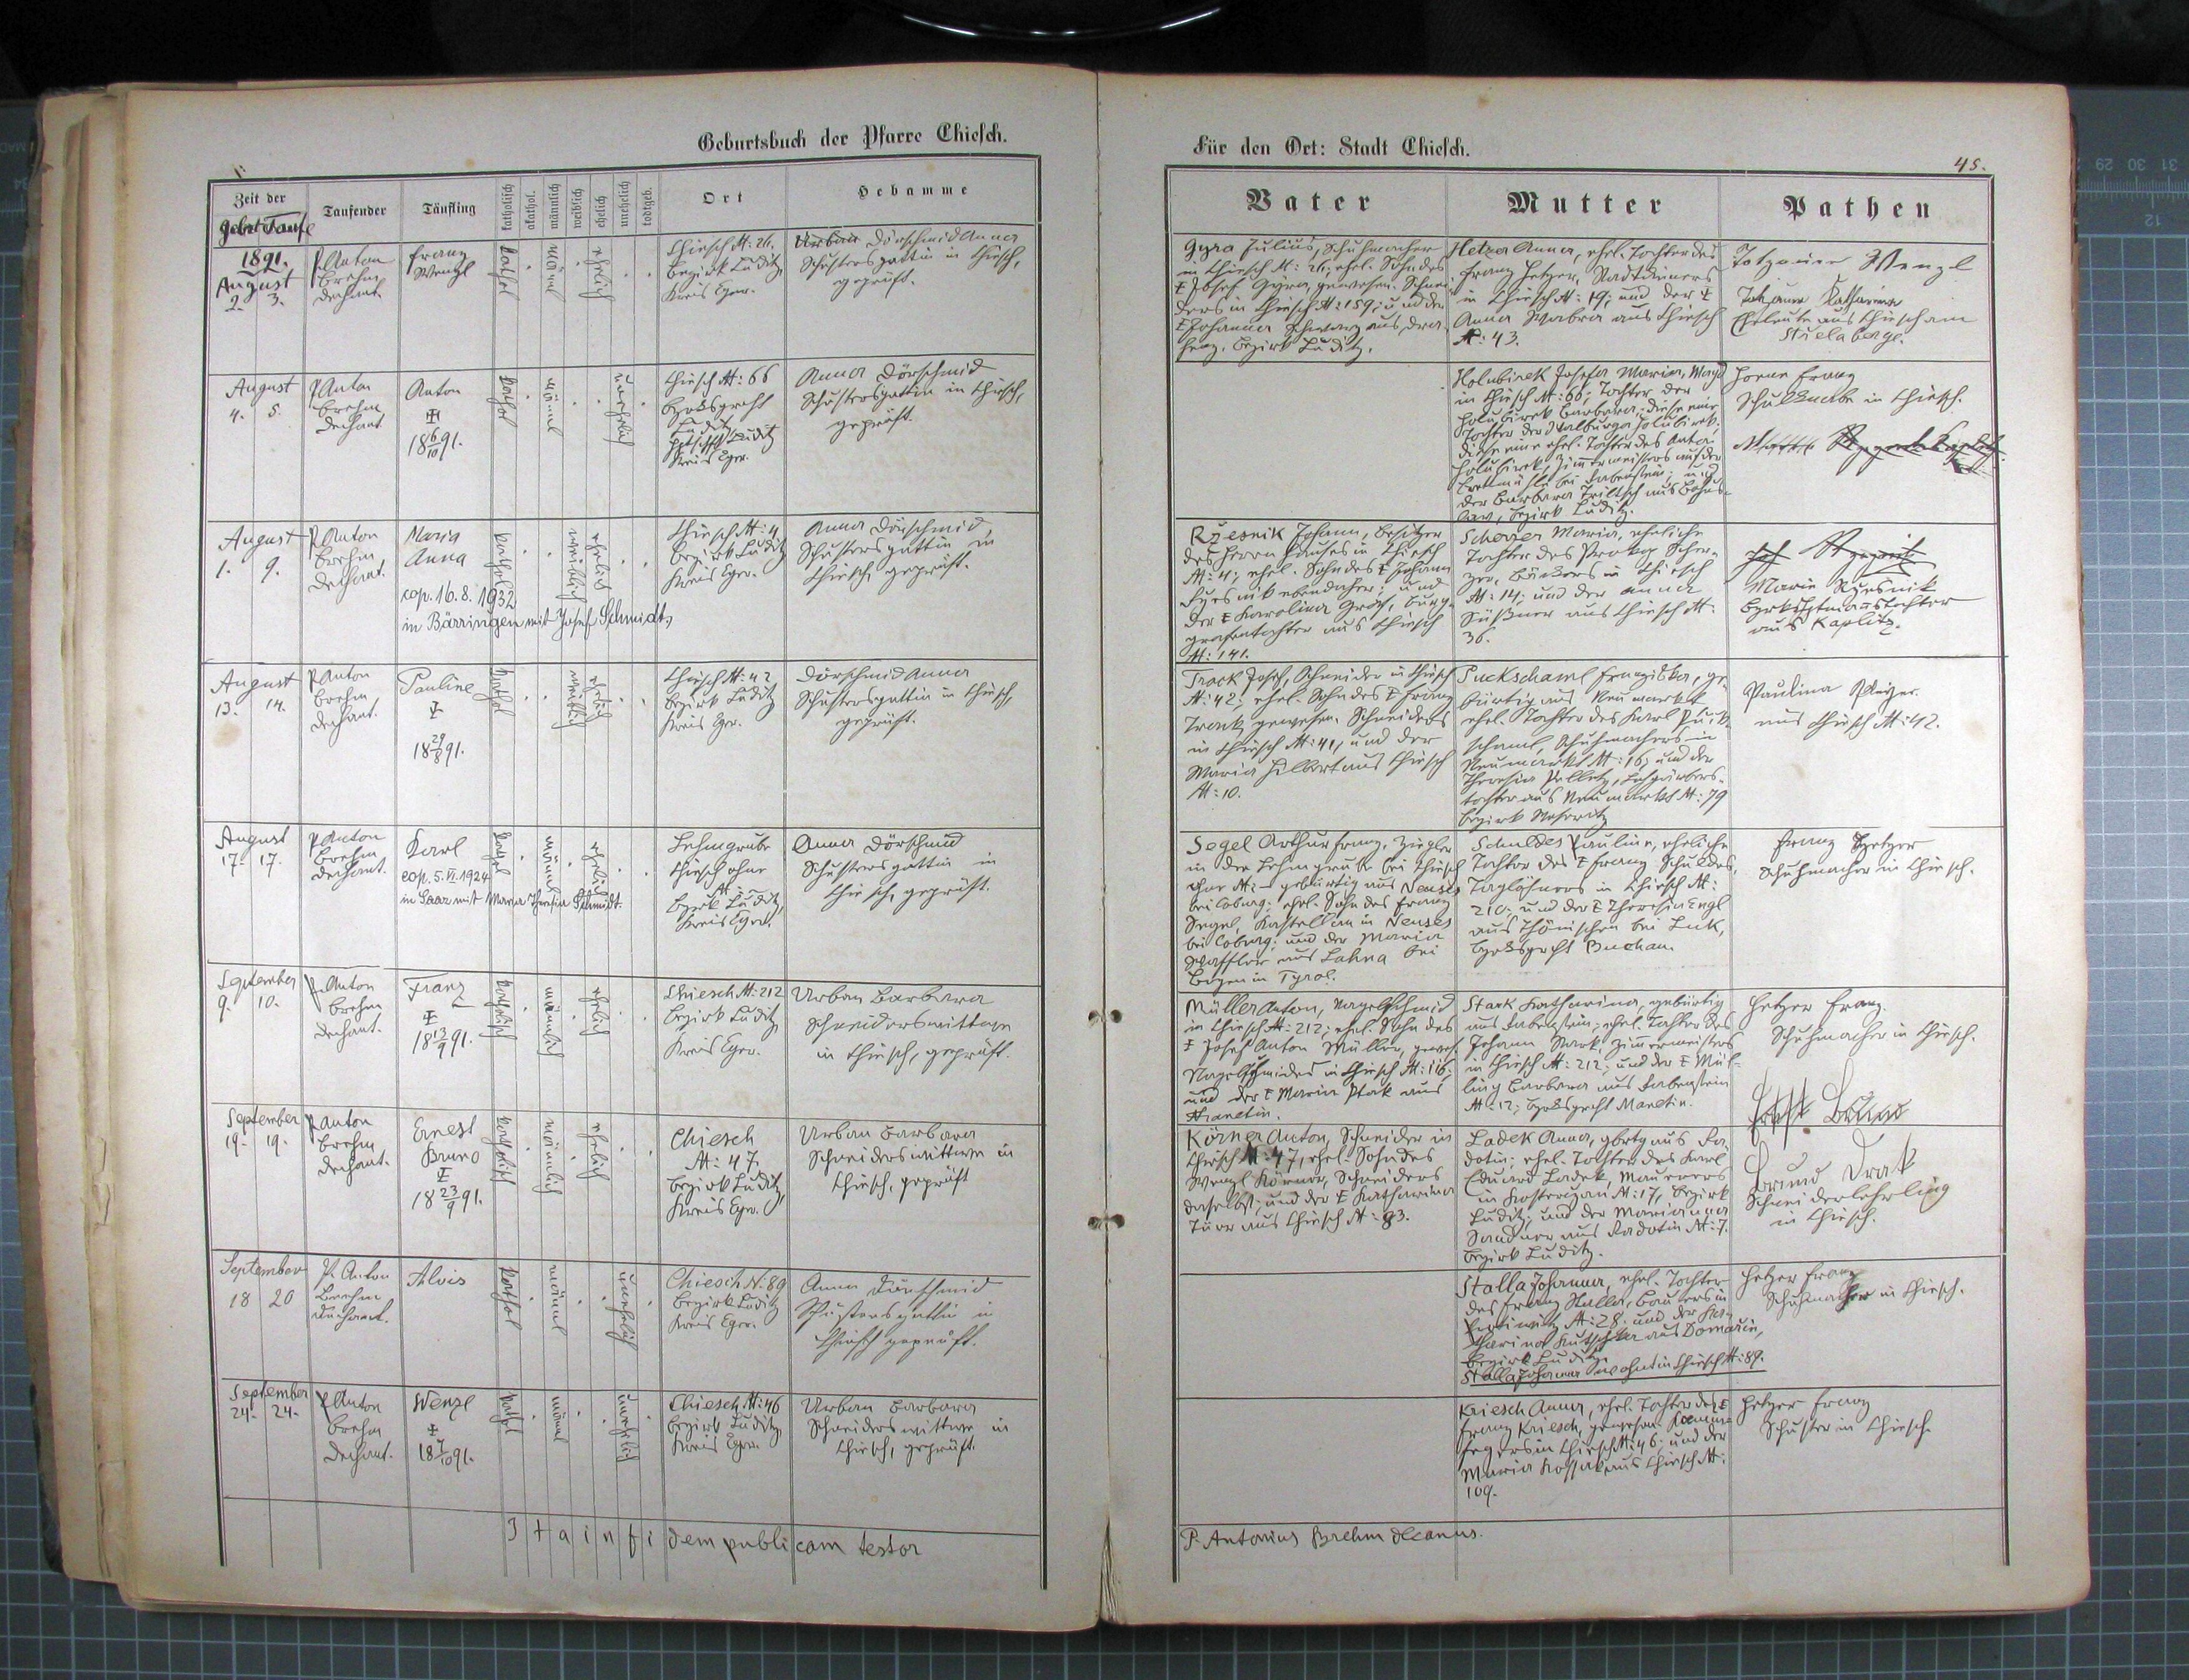 Geburtsbuch der Pfarre Chiesch.
Zeit der
Gebrt Taufe
Taufender
Täufling
katholisch
akathol.
männlich
weiblich
ehelich
unehelich
todtgeb.
Ort
Hebamme
1891.
August
2. 3.
P. Anton
Brehm
Dechant
Franz
Wenzl
kathol
männl
ehelich
Chiesch N: 26.
Bezirk Luditz
Kreis Eger.
Dörschmid Anna
Schustersgattin in Chiesch,
geprüft.
August
4. 5.
P. Anton
Brehm
Dechant
Anton
18 6/10 91.
kathol
männl
unehelich
Chiesch N: 66
Bzrksgrcht
Luditz
Luditz
Kreis Eger.
Anna Dörschmid
Schustersgattin in Chiesch,
geprüft.
August
1. 9.
P. Anton
Brehm
Dechant.
Maria
Anna
cop. 16.8.1932
in Bärringen mit Josef Schmidt
kathol
weiblich
ehelich
Chiesch N: 4
Bezirk Luditz
Kreis Eger.
Anna Dörschmid
Schustersgattin in
Chiesch, geprüft.
August
13. 14.
P. Anton
Brehm
Dechant.
Pauline
18 29/8 91.
kathol
weiblich
ehelich
Chiesch N: 42
Bezirk Luditz
Kreis Eger.
Dörschmid Anna
Schustersgattin in Chiesch,
geprüft.
August
17. 17.
P. Anton
Brehm
Dechant.
Karl
cop. 5.VI.1924
in Saaz mit Maria Theresia Schmidt.
kathol
männl
ehelich
Lehmgrube
Chiesch ohne
N: –
Bzrk Luditz,
Kreis Eger.
Anna Dörschmid
Schustersgattin in
Chiesch, geprüft.
September
9. 10.
P. Anton
Brehm
Dechant.
Franz
18 13/9 91.
katholisch
männlich
ehelich
Chiesch N: 212
Bezirk Luditz
Kreis Eger.
Urban Barbara
Schneiderswittwe
in Chiesch, geprüft.
September
19. 19.
P. Anton
Brehm
Dechant.
Ernest
Bruno
18 23/9 91.
katholisch
männlich
ehelich
Chiesch
N: 47.
Bezirk Luditz,
Kreis Eger.
Urban Barbara
Schneiderswittwe in
Chiesch, geprüft
September
18 20
P. Anton
Brehm
Dechant.
Alois
kathol
männl
unehelich
Chiesch N: 89
Bezirk Luditz
Kreis Eger.
Anna Dörschmid
Schustersgattin in
Chiesch geprüft.
September
24. 24.
P. Anton
Brehm
Dechant.
Wenzl
18 7/10 91.
kathol
männl
unehelich
Chiesch N: 46
Bezirk Luditz
Kreis Eger.
Urban Barbara
Schneiderswittwe in
Chiesch, geprüft.
Ita in fidem publicam testor
Für den Ort: Stadt Chiesch.
45.
Vater
Mutter
Pathen
Gyra Julius, Schuhmacher
in Chiesch N: 26, ehel. Sohn des
Josef Gyra, gewesen. Schnei-
ders in Chiesch N: 159; und der
Johanna Schwarz aus
Bezirk Luditz.
Hetzer Anna, ehel. Tochter des
Franz Hetzer,
in Chiesch N: 19; und der
Anna Wabra aus Chiesch
N: 43.
Wenzl
Katharina
Eheleute aus Chiesch am
Holubirek Josefa Maria, Magd
in Chiesch N: 66, Tochter der
Holubirek Barbara; diese eine
Tochter der Walburga Holubirek.
diese eine ehel. Tochter des Anton
Holubirek, Zimmermeisters auf der
Brettmühle bei Rabenstein; und
der Barbara Triltsch aus
Bezirk Luditz.
Franz
Schulknabe in Chiesch.
Rzesnik Johann, Besitzer
des Herrn Hauses in Chiesch
N: 4; ehel. Sohn des Johann
Rzesnik ebendaher; und
der Karolina Groh, Burg-
grafentochter aus Chiesch
N: 141.
Scherzer Maria, eheliche
Tochter des Prokop Scher-
zer, Bäckers in Chiesch
N: 14; und der Anna
Süßner aus Chiesch N:
36.
Marie Rzesnik
Bzrkshptmannstochter
aus Kaplitz.
Track Josef, Schneider in Chiesch
N: 42; ehel. Sohn des Franz
Track gewesen. Schneiders
in Chiesch N: 41, und der
Maria Hilbert aus Chiesch
N: 10.
Puckschaml Franziska, ge-
bürtig aus Neumarkt
ehel. Tochter des Karl Puck-
schaml, Schuhmachers in
Neumarkt N: 16; und der
Theresia Pelletz, Lohgärbers-
tochter aus Neumarkt N: 79
Bezirk Weseritz
Paulina
aus Chiesch N: 42.
Segel Arthur Franz, Ziegler
in der Lehmgrube bei Chiesch
ohne N: – gebürtig aus Neuses
bei Coburg; ehel. Sohn des Franz
Segel, Kastellan in Neuses
bei Coburg; und der Maria
Schaffler aus Lahna bei
Bozen in Tyrol.
Schuldes Pauline, eheliche
Tochter des Franz Schuldes,
Taglöhners in Chiesch N:
210; und der Theresia Engl
aus Thönischen bei Luk,
Bzrksgrcht Buchau.
Franz Hetzer
Schuhmacher in Chiesch.
Müller Anton, Nagelschmid
in Chiesch N: 212; ehel. Sohn des
Josef Anton Müller, gewes.
Nagelschmides in Chiesch N: 116;
und der Maria Ptak aus
Manetin.
Stark Katharina, gebürtig
aus Rabenstein; ehel. Tochter des
Johann Stark, Zimmermeisters
in Chiesch N: 212; und der Mül-
ling Barbara aus Rabenstein
N: 12; Bzrksgrcht Manetin.
Hetzer Franz.
Schuhmacher in Chiesch.
Körner Anton, Schneider in
Chiesch N: 47, ehel. Sohn des
Wenzl Körner, Schneiders
daselbst; und der Katharina
Türr aus Chiesch N: 83.
Ladek Anna, gbrtg aus Ra-
dotin; ehel. Tochter des Karl
Eduard Ladek, Maurers
in Kosterzan N: 17, Bezirk
Luditz; und der Marianna
Sandner aus Radotin N: 7.
Bezirk Luditz.
Bruno Drak
Schneiderlehrling
in Chiesch.
Stalla Johanna, ehel. Tochter
des Franz Stalla, Bauers in
N: 28. und der Ka-
tharina Kutschka aus Domaschin,
Bezirk Luditz
Stalla Johanna wohnt in Chiesch N: 89.
Hetzer Franz
Schuhmacher in Chiesch.
Kriesch Anna, ehel. Tochter des
Franz Kriesch, gewesen.
in Chiesch N: 46; und der
Maria Kossak aus Chiesch N:
109.
Hetzer Franz
Schuster in Chiesch.
P. Antonius Brehm decanus.